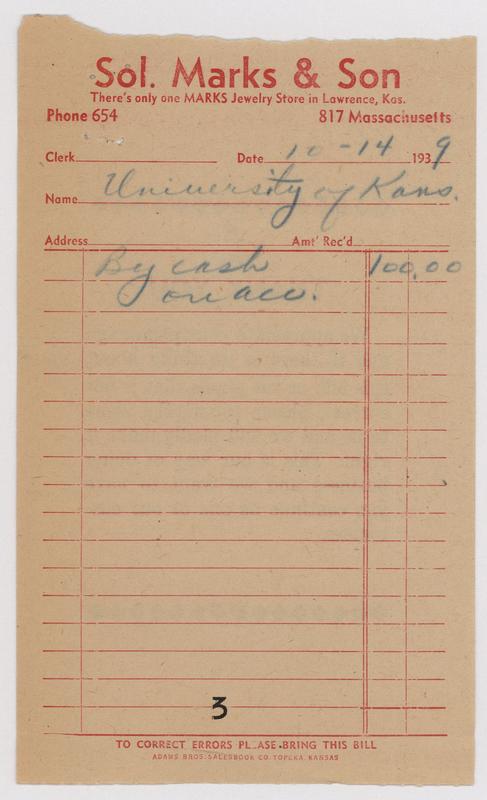 Sol. Marks & Son
There's only one MARKS Jewelry Store in Lawrence, Kas.
Phone 654 817 Massachusetts
Clerk Date 10-14 1939
Name University of Kans.
Address Amt' Rec'd
By cash 100.00
on acc.
3
TO CORRECT ERRORS PLEASE BRING THIS BILL
ADAMS BROS. SALESBOOK CO. TOPEKA, KANSAS